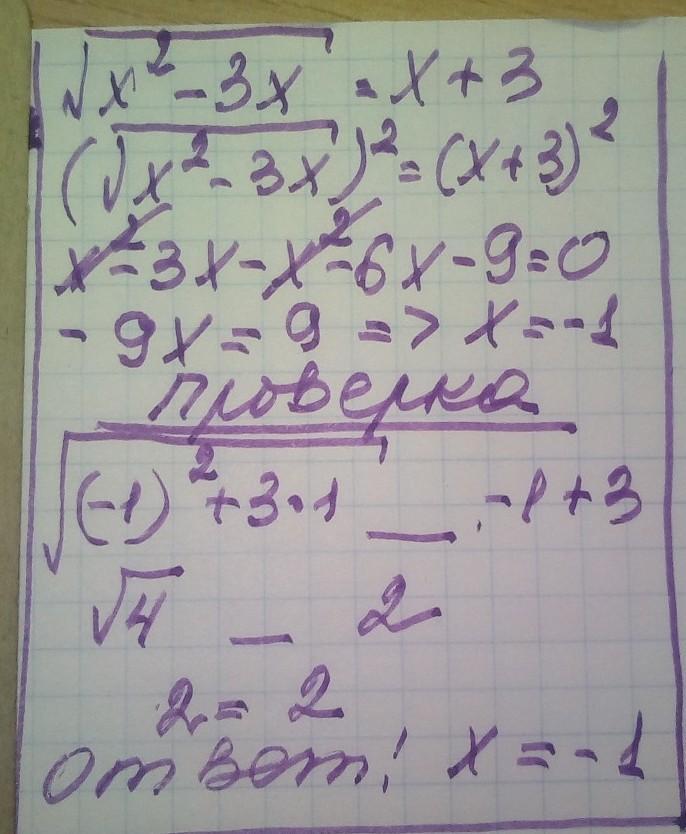 √x² - 3x = x + 3
(√x² - 3x)² = (x+3)²
x² - 3x - x² - 6x - 9 = 0
- 9x = 9 => x = -1
проверка
√(-1)² + 3·1 _ -1 + 3
√4 _ 2
2 = 2
ответ! x = -1